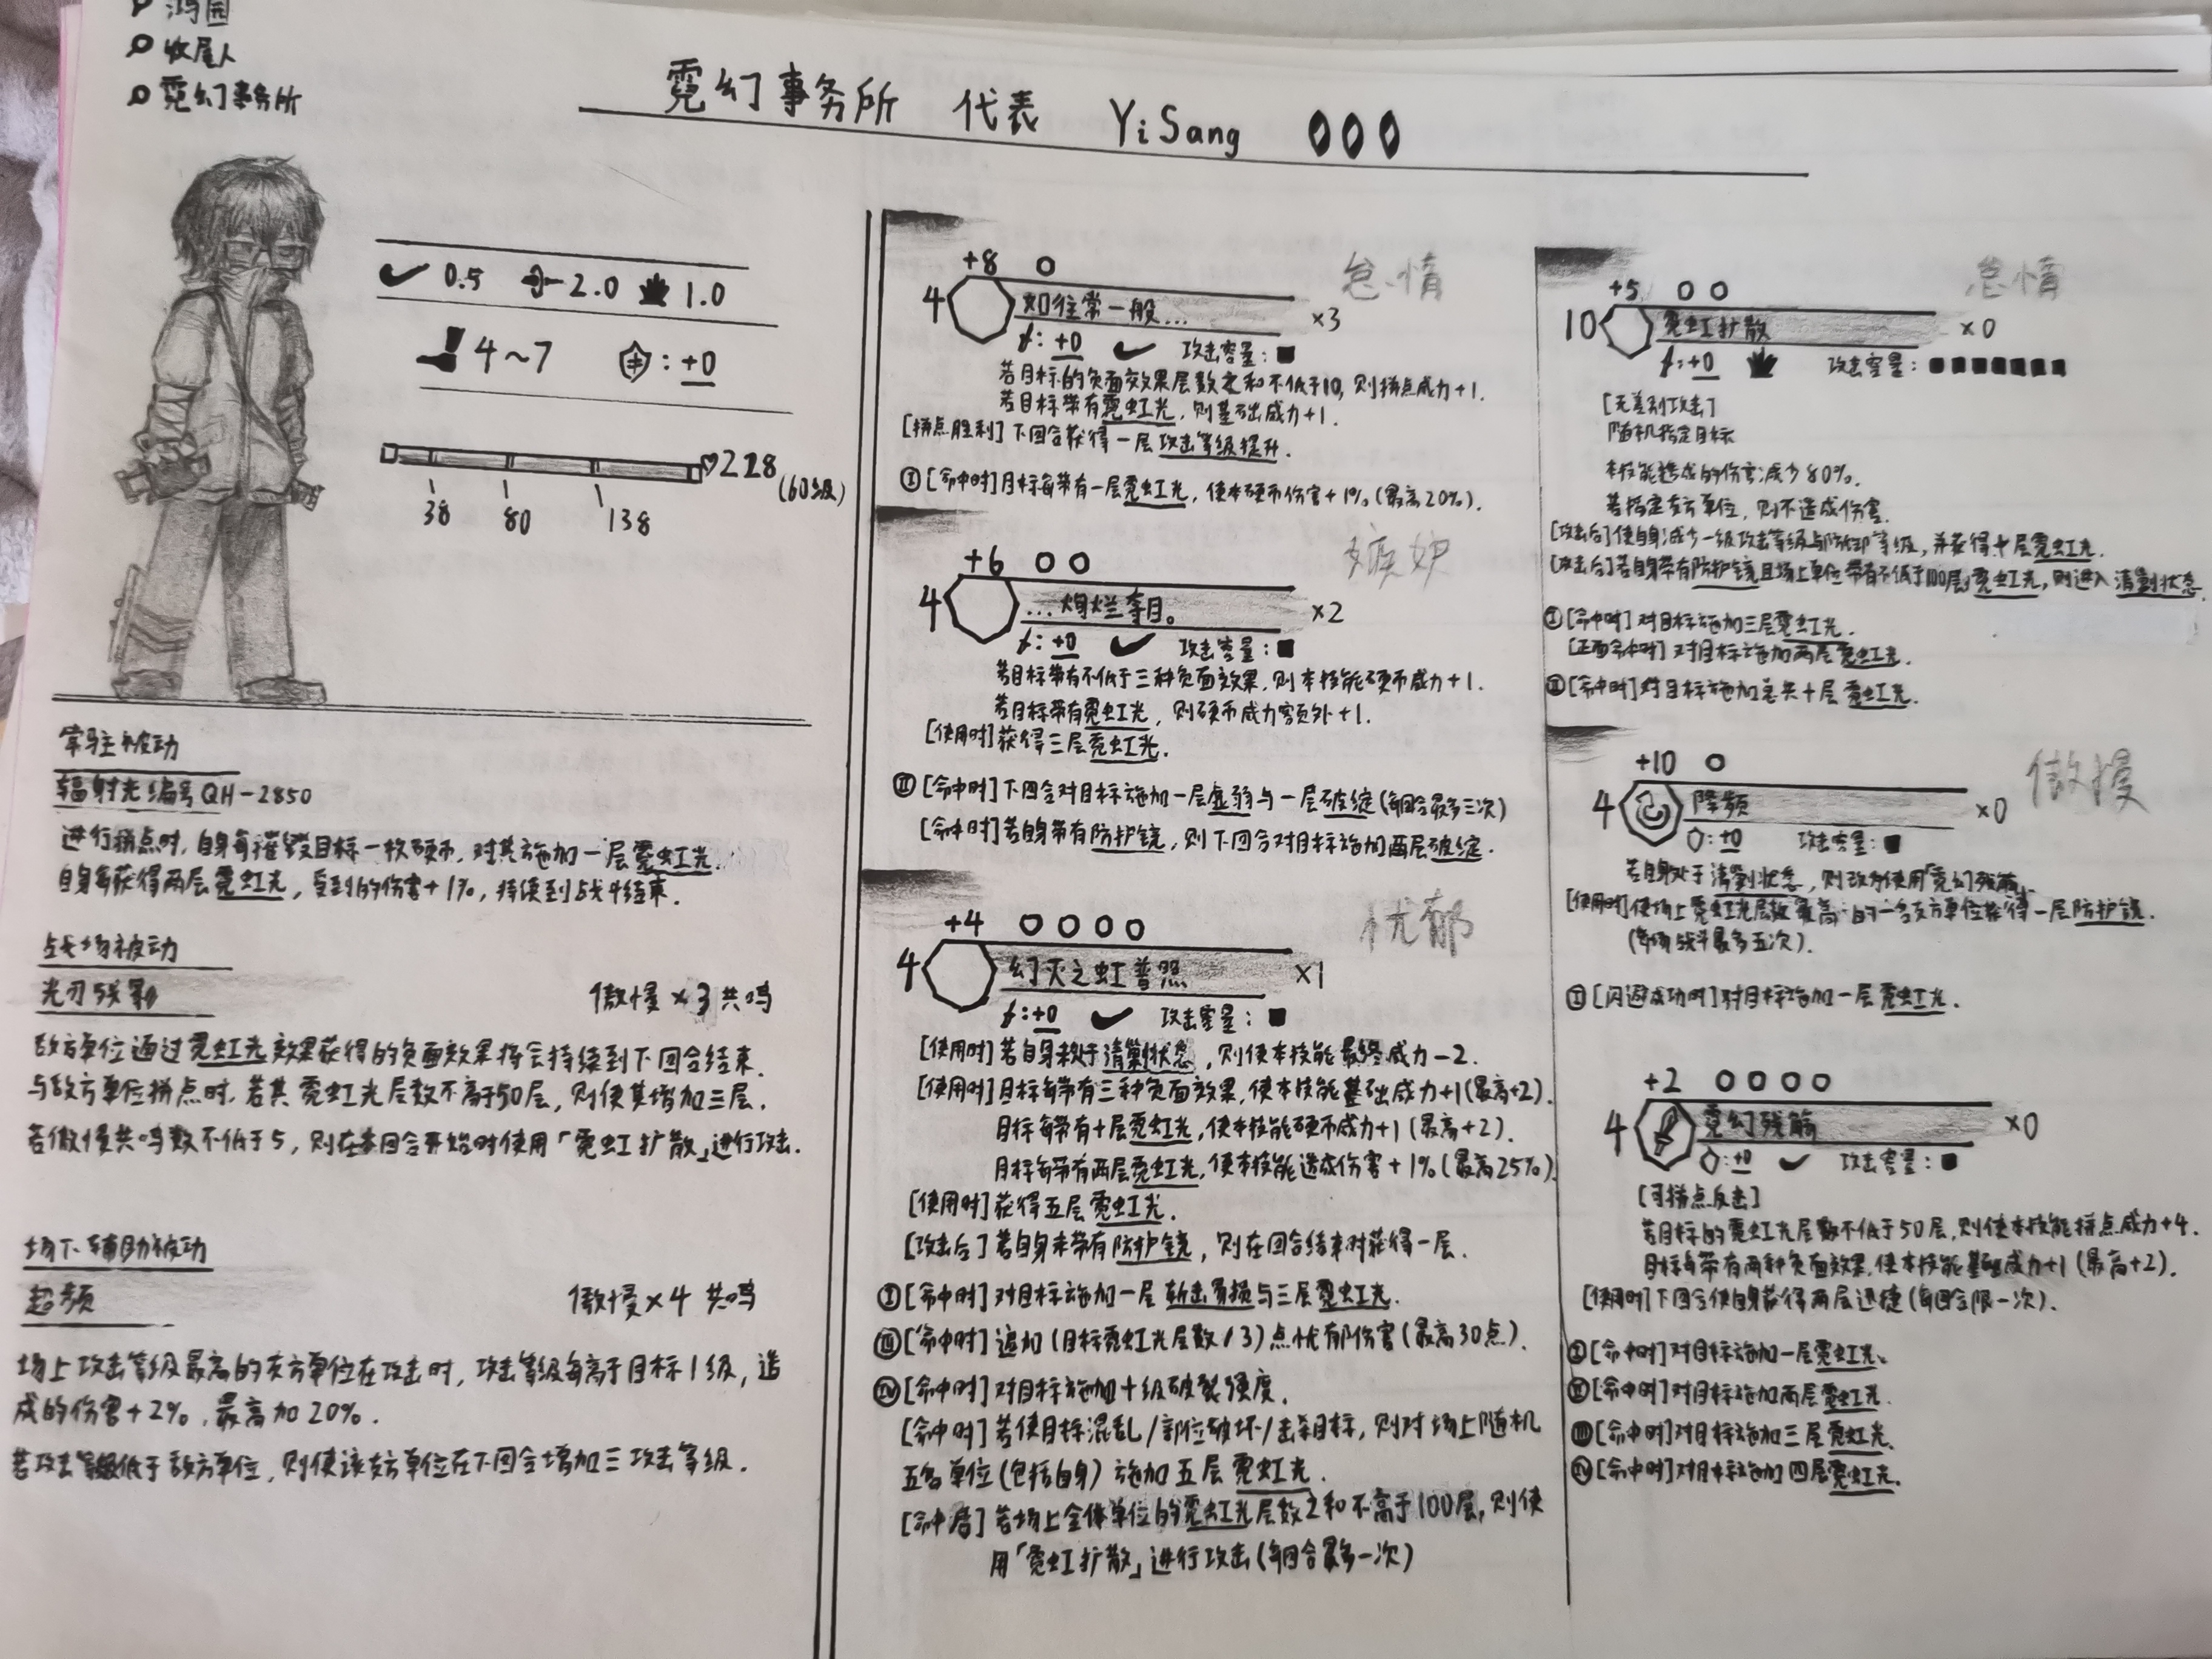 鸿园
收尾人
霓幻事务所
霓幻事务所 代表 YiSang
0.5 2.0 1.0
4～7 :+0
228
(60级)
38 80 138
常驻被动
辐射光编号QH-2850
进行拼点时,自身每摧毁目标一枚硬币,对其施加一层霓虹光.
自身每获得两层霓虹光,受到的伤害+1%,持续到战斗结束.
战场被动
光刃残影
傲慢×3共鸣
敌方单位通过霓虹光效果获得的负面效果将会持续到下回合结束.
与敌方单位拼点时,若其霓虹光层数不高于50层,则使其增加三层.
若傲慢共鸣数不低于5,则在本回合开始时使用「霓虹扩散」进行攻击.
场下辅助被动
超频
傲慢×4 共鸣
场上攻击等级最高的友方单位在攻击时,攻击等级每高于目标1级,造
成的伤害+2%,最高加20%.
若攻击等级低于敌方单位,则使该友方单位在下回合增加三攻击等级.
怠惰
+8
4 如往常一般... ×3
:+0 攻击容量:■
若目标的负面效果层数之和不低于10,则拼点威力+1.
若目标带有霓虹光,则基础威力+1.
[拼点胜利]下回合获得一层攻击等级提升.
Ⅰ[命中时]目标每带有一层霓虹光,使本硬币伤害+1%(最高20%).
嫉妒
+6
4 ...灿烂夺目。 ×2
:+0 攻击容量:■
若目标带有不低于三种负面效果,则本技能硬币威力+1.
若目标带有霓虹光,则硬币威力额外+1.
[使用时]获得三层霓虹光.
Ⅱ[命中时]下回合对目标施加一层虚弱与一层破绽(每回合最多三次)
[命中时]若自身带有防护镜,则下回合对目标施加两层破绽.
忧郁
+4
4 幻灭之虹普照 ×1
:+0 攻击容量:■
[使用时]若自身未处于清剿状态,则使本技能最终威力-2.
[使用时]目标每带有三种负面效果,使本技能基础威力+1(最高+2).
目标每带有十层霓虹光,使本技能硬币威力+1(最高+2).
目标每带有两层霓虹光,使本技能造成伤害+1%(最高25%).
[使用时]获得五层霓虹光.
[攻击后]若自身未带有防护镜,则在回合结束时获得一层.
Ⅰ[命中时]对目标施加一层斩击易损与三层霓虹光.
Ⅲ[命中时]追加(目标霓虹光层数/3)点忧郁伤害(最高30点).
Ⅳ[命中时]对目标施加十级破裂强度.
[命中时]若使目标混乱/部位破坏/击杀目标,则对场上随机
五名单位(包括自身)施加五层霓虹光.
[命中后]若场上全体单位的霓虹光层数之和不高于100层,则使
用「霓虹扩散」进行攻击(每回合最多一次)
怠惰
+5
10 霓虹扩散 ×0
:+0 攻击容量:■■■■■■■
[无差别攻击]
随机指定目标
本技能造成的伤害减少80%.
若指定友方单位,则不造成伤害.
[攻击后]使自身减少一级攻击等级与防御等级,并获得十层霓虹光.
[攻击后]若自身带有防护镜且场上单位带有不低于100层霓虹光,则进入清剿状态.
Ⅰ[命中时]对目标施加三层霓虹光.
[正面命中时]对目标施加两层霓虹光.
Ⅱ[命中时]对目标施加总共十层霓虹光.
傲慢
+10
4 降频 ×0
:+0 攻击容量:■
若自身处于清剿状态,则改为使用「霓幻残骸」.
[使用时]使场上霓虹光层数最高的一名友方单位获得一层防护镜.
(每场战斗最多五次).
Ⅰ[闪避成功时]对目标施加一层霓虹光.
+2
4 霓幻残骸 ×0
:+0 攻击容量:■
[可拼点反击]
若目标的霓虹光层数不低于50层,则使本技能拼点威力+4.
目标每带有两种负面效果,使本技能基础威力+1(最高+2).
[使用时]下回合使自身获得两层迅捷(每回合限一次).
Ⅰ[命中时]对目标施加一层霓虹光.
Ⅱ[命中时]对目标施加两层霓虹光.
Ⅲ[命中时]对目标施加三层霓虹光.
Ⅳ[命中时]对目标施加四层霓虹光.